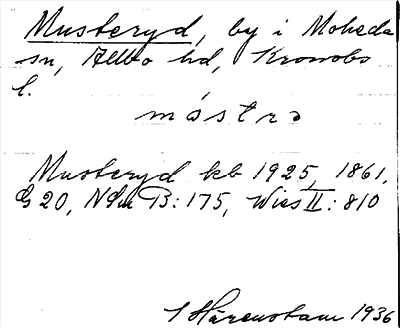 Musteryd, by i Moheda
sn, Allbo hd, Kronobs
l.
mástrə
Musteryd kb 1925, 1861,
G 20, NSm B: 175, Wies II: 810
Härenstam 1936